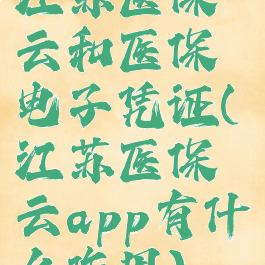 江苏医保
云和医保
电子凭证(
江苏医保
云app有什
么作用)